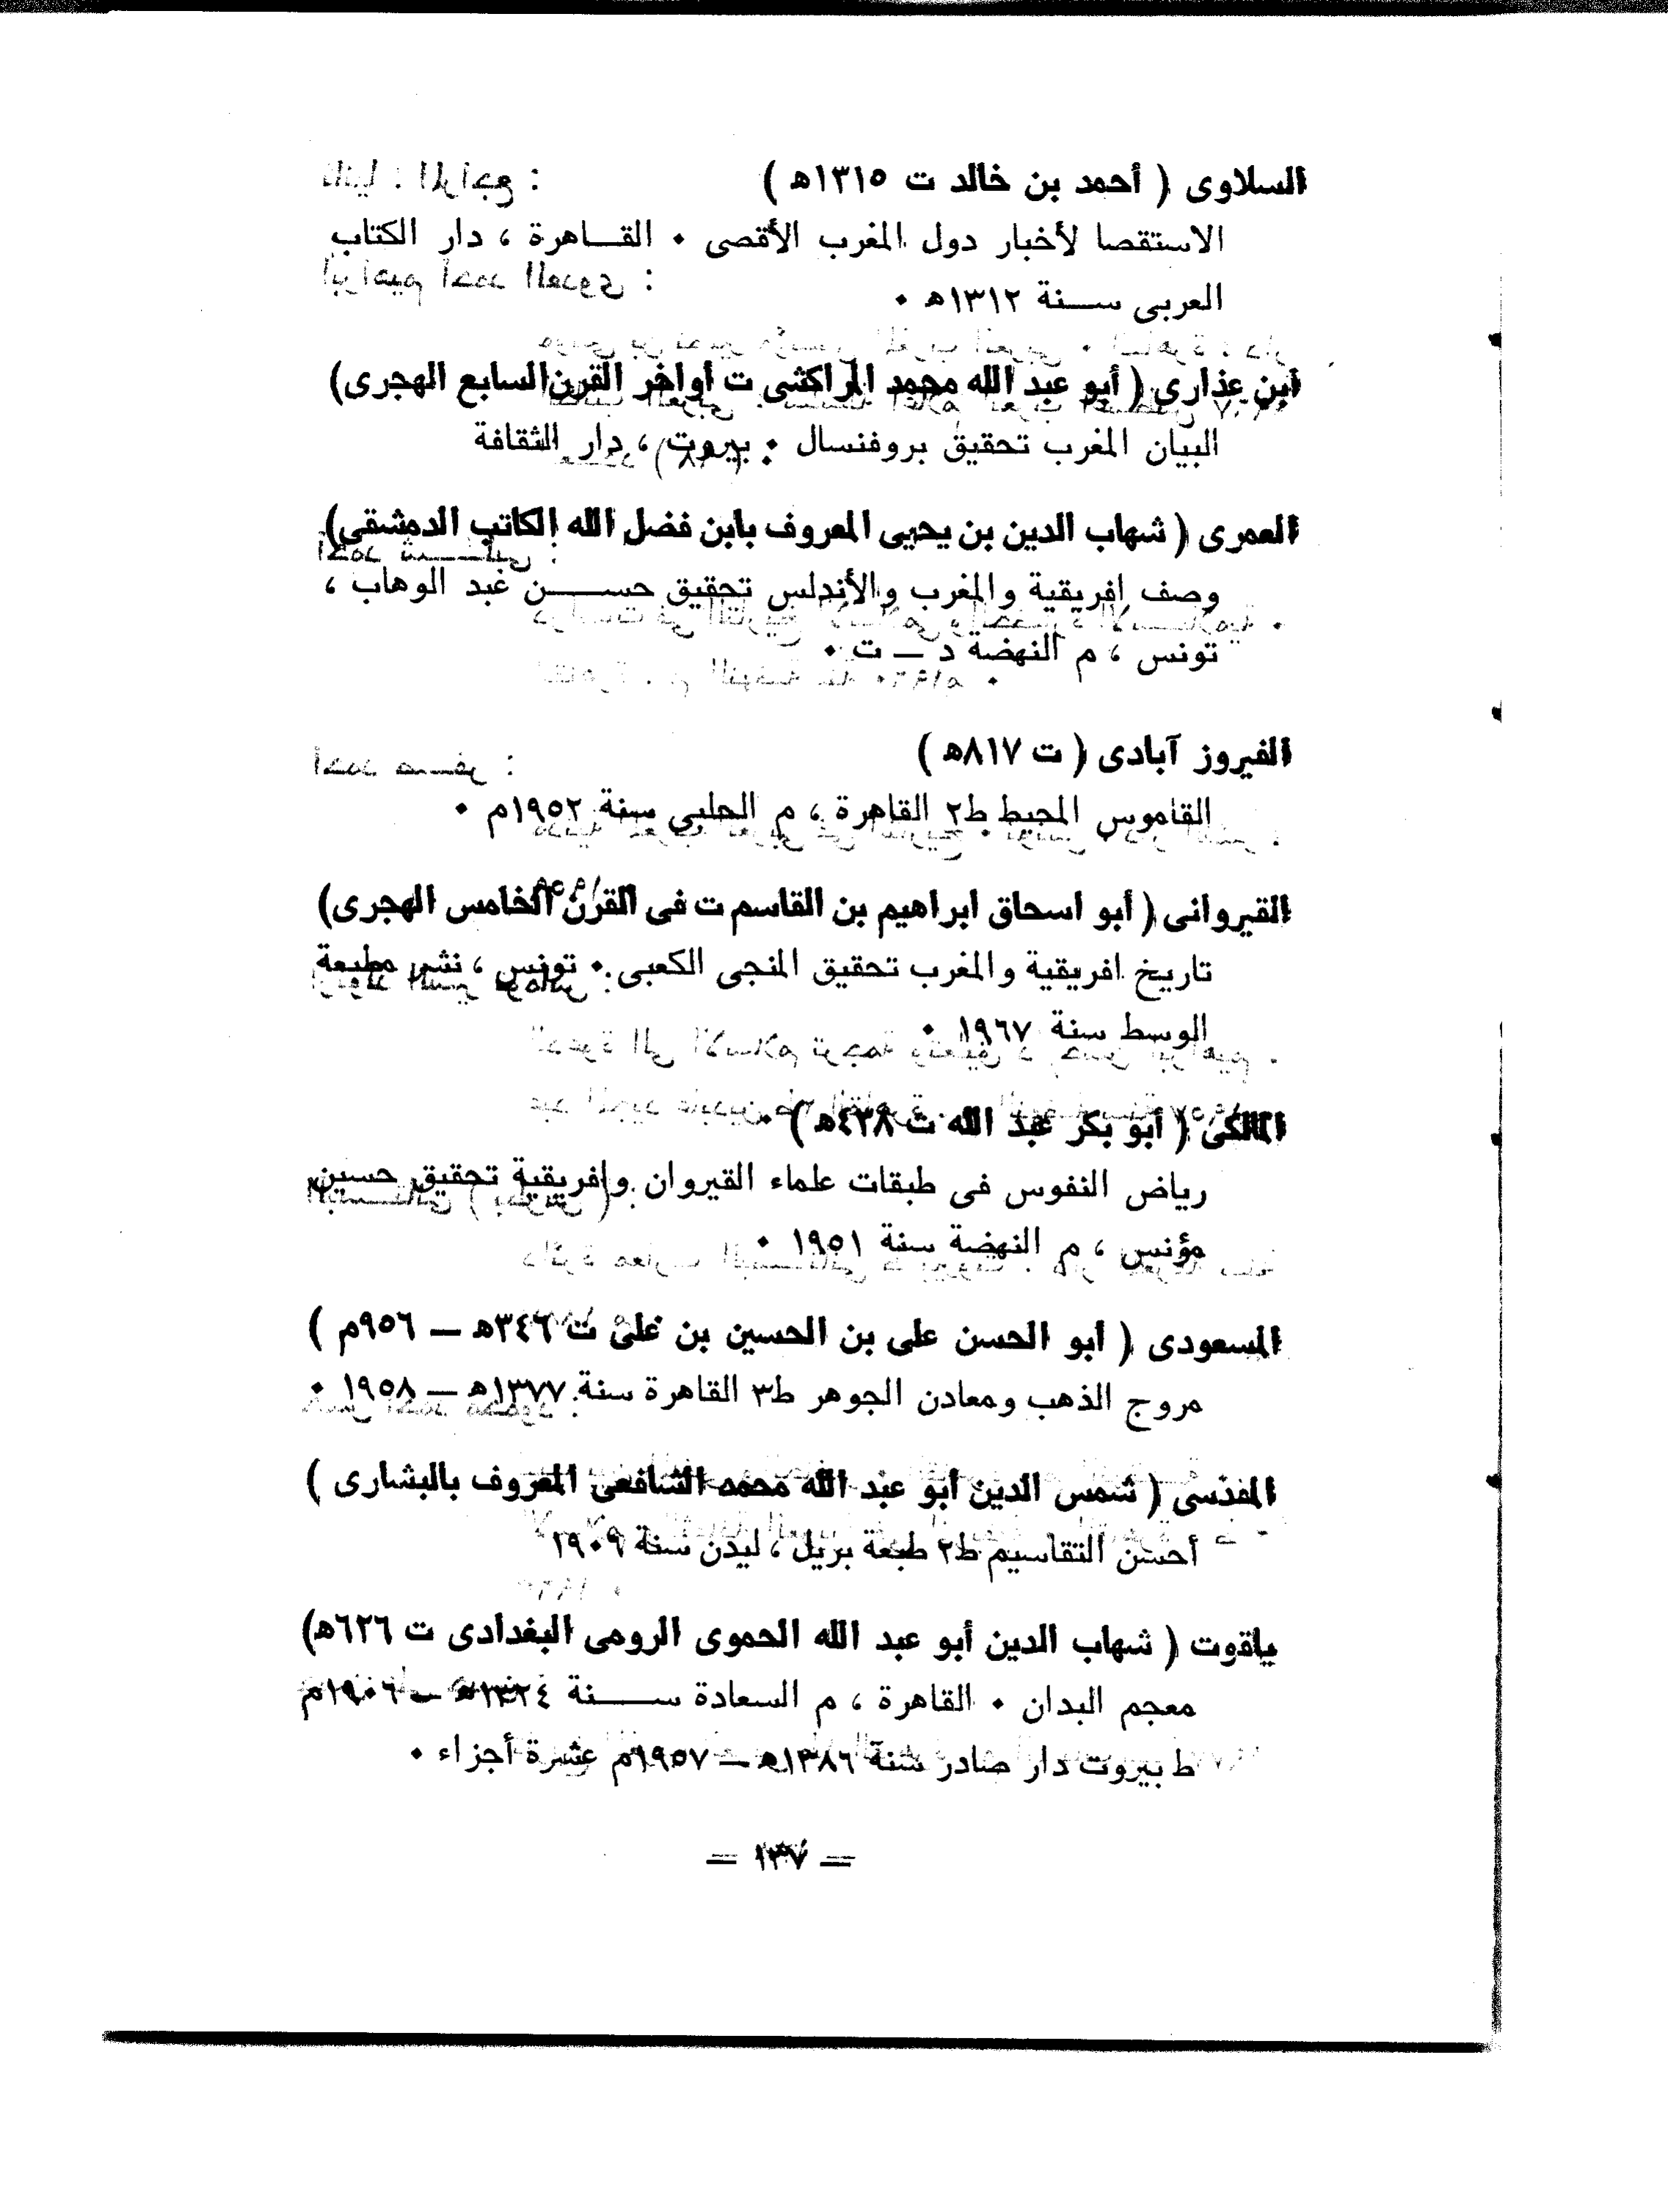 السلاوى ( أحمد بن خالد ت ١٣١٥هـ )
الاستقصا لأخبار دول المغرب الأقصى ٠ القـــاهرة ، دار الكتاب
العربى ســـنة ١٣١٢هـ ٠
أبن عذارى ( أبو عبد الله محمد المراكشى ت أواخر القرن السابع الهجرى)
البيان المغرب تحقيق بروفنسال ٠ بيروت ، دار الثقافة
العمرى ( شهاب الدين بن يحيى المعروف بابن فضل الله الكاتب الدمشقى)
وصف افريقية والمغرب والأندلس تحقيق حســـــن عبد الوهاب ،
تونس ، م النهضة د — ت ٠
الفيروز آبادى ( ت ٨١٧هـ )
القاموس المحيط ط٢ القاهرة ، م الحلبى سنة ١٩٥٢م ٠
القيروانى ( أبو اسحاق ابراهيم بن القاسم ت فى القرن الخامس الهجرى)
تاريخ افريقية والمغرب تحقيق المنجى الكعبى ٠ تونس ، نشر مطبعة
الوسط سنة ١٩٦٧ ٠
المالكى ( أبو بكر عبد الله ت ٤٣٨هـ )
رياض النفوس فى طبقات علماء القيروان وافريقية تحقيق حسين
مؤنس ، م النهضة سنة ١٩٥١ ٠
المسعودى ( أبو الحسن على بن الحسين بن على ت ٣٤٦هـ — ٩٥٦م )
مروج الذهب ومعادن الجوهر ط٣ القاهرة سنة ١٣٧٧هـ — ١٩٥٨ ٠
المقدسى ( شمس الدين أبو عبد الله محمد الشافعى المعروف بالبشارى )
أحسن التقاسيم ط٢ طبعة بريل ، ليدن سنة ١٩٠٩
ياقوت ( شهاب الدين أبو عبد الله الحموى الرومى البغدادى ت ٦٢٦هـ)
معجم البدان ٠ القاهرة ، م السعادة ســـــنة ١٣٢٤هـ — ١٩٠٦م
ط بيروت دار صادر سنة ١٣٨٦هـ — ١٩٥٧م عشرة أجزاء ٠
— ١٣٧ —